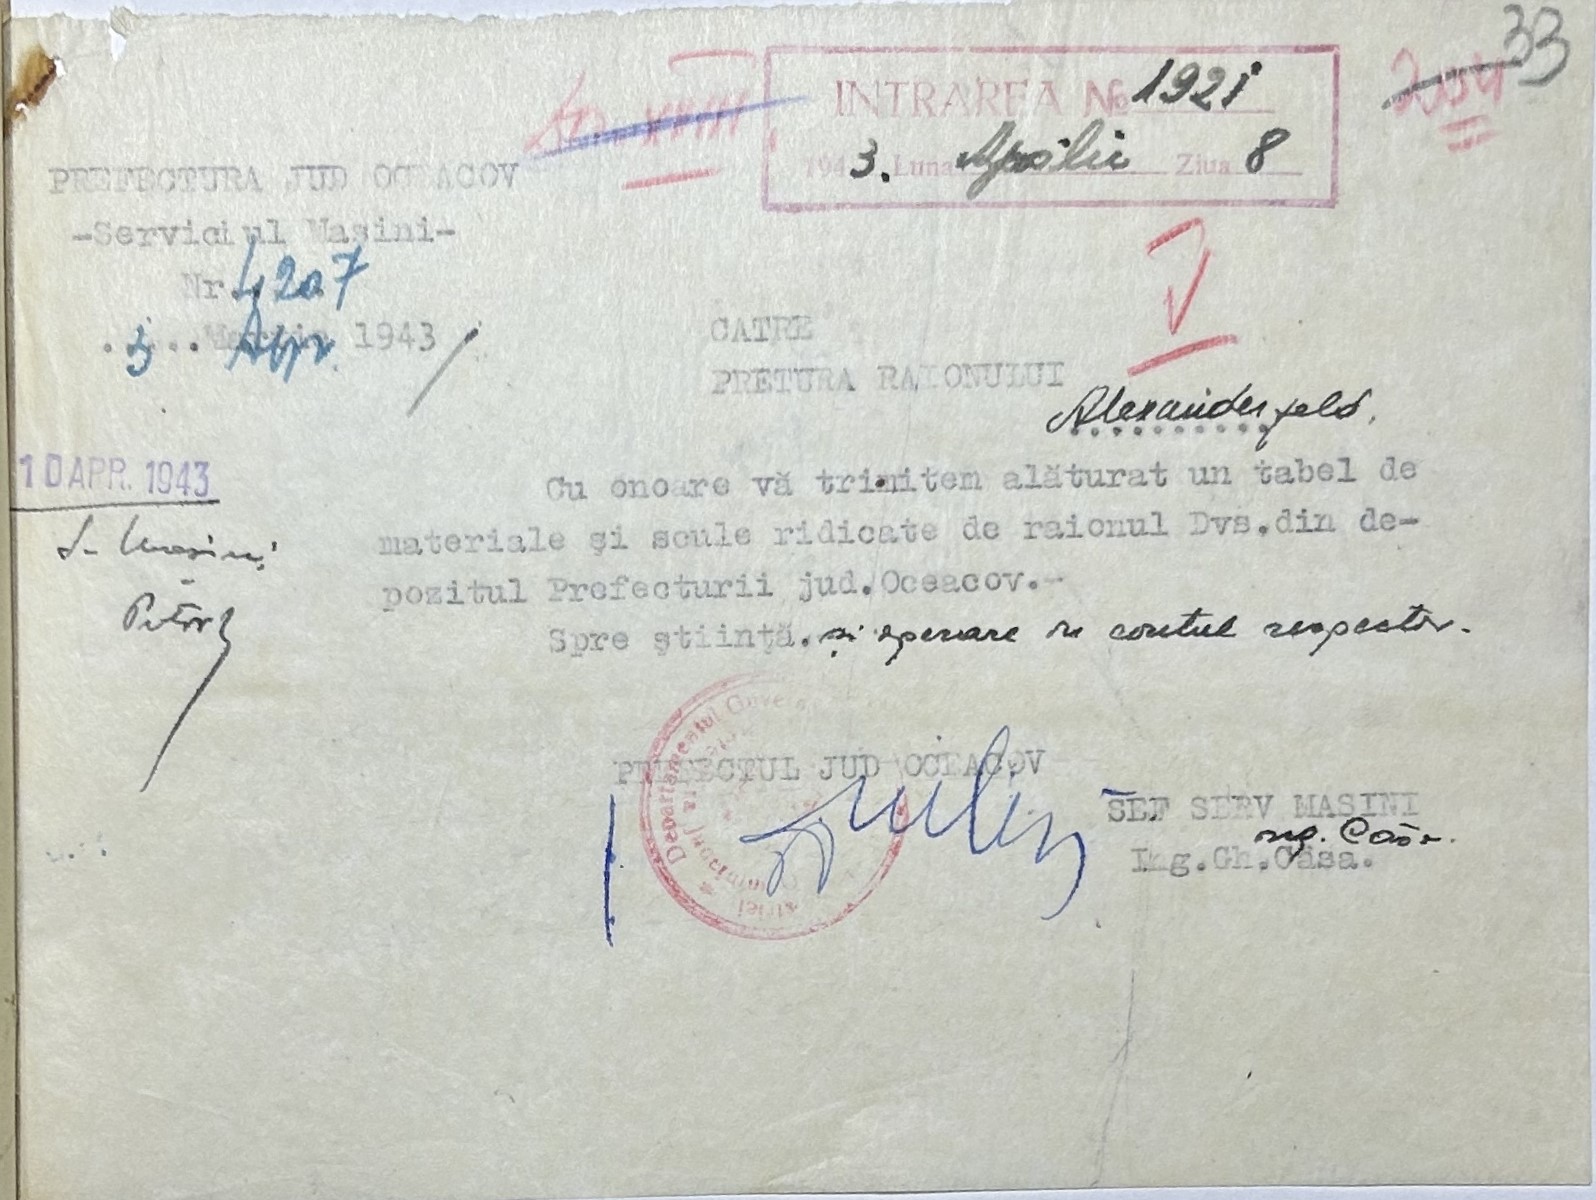 33
INTRAREA No 1921
1943. Luna Aprilie Ziua 8
PREFECTURA JUD OCEACOV
-Serviciul Masini-
Nr. 4207
5 Apr. 1943
V
CATRE
PRETURA RAIONULUI
Alexanderfeld.
10 APR. 1943
Cu onoare vă trimitem alăturat un tabel de
materiale şi scule ridicate de raionul Dvs.din de-
pozitul Prefecturii jud.Oceacov.-
Spre ştiinţă. și operare în contul respectiv.
S. Masini
PREFECTUL JUD OCEACOV
Departamentul Guver
ŠEF SERV MASINI
ing. Căsa.
Ing.Gh.Căsa.